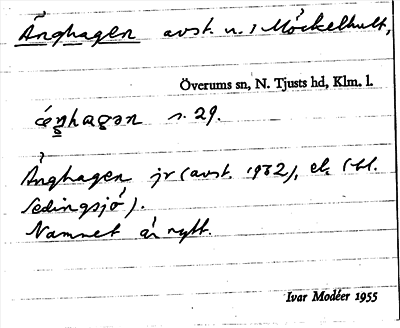 Änghagen avst. u. 1 Möckelhult,
Överums sn, N. Tjusts hd, Klm. l.
s. 29.
Änghagen jr (avst. 1932), el. (bl.
Sedingsjö).
Namnet är nytt.
Ivar Modéer 1955